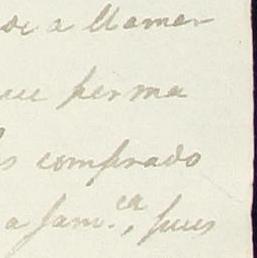 de a llamar
que perma
s comprado
a fam.ca, pues